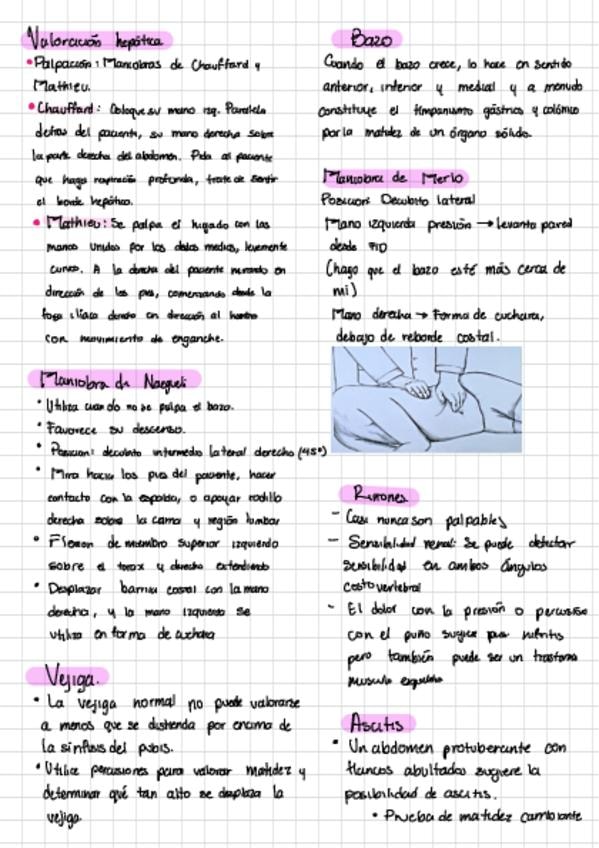 Valoración hepática
• Palpación: Maniobras de Chauffard y
Mathieu.
• Chauffard: Coloque su mano izq. Paralela
detras del paciente, su mano derecha sobre
la parte derecha del abdomen. Pida al paciente
que haga respiración profunda, trate de sentir
el borde hepático.
• Mathieu: Se palpa el higado con las
manos unidas por los dedos medios, levemente
curvos. A la derecha del paciente mirando en
dirección de los pies, comenzando desde la
fosa iliaca derecha en dirección al
con movimiento de enganche.
Maniobra de Naegueli
• Utiliza cuando no se palpa el bazo.
• Favorece su descenso.
• Posicion: decubito intermedio lateral derecho (45°)
• Mira hacia los pies del paciente, hacer
contacto con la espalda, o apoyar rodilla
derecha sobre la cama y región lumbar
• Flexion de miembro superior izquierdo
sobre el torax y derecho extendiendo
• Desplazar barrera costal con la mano
derecha, y la mano izquierda se
utiliza en forma de cuchara
Vejiga.
• La vejiga normal no puede valorarse
a menos que se distienda por encima de
la sinfisis del pubis.
• Utilice percusiones para valorar matidez y
determinar qué tan alto se desplaza la
vejiga.
Bazo
Cuando el bazo crece, lo hace en sentido
anterior, inferior y medial y a menudo
constituye el timpanismo gástrico y colónico
por la matidez de un órgano sólido.
Maniobra de Merlo
Posicion: Decubito lateral
Mano izquierda presión → levanta pared
desde FID
(hago que el bazo esté más cerca de
mi)
Mano derecha → Forma de cuchara,
debajo de reborde costal.
Riñones
- Casi nunca son palpables
- Sensibilidad renal: Se puede detectar
sensibilidad en ambos ángulos
costovertebral
- El dolor con la presión o percusión
con el puño sugiere nefritis
pero también puede ser un trastorno
musculo
Ascitis
• Un abdomen protuberante con
flancos abultados sugiere la
posibilidad de ascitis.
• Prueba de matidez cambiante